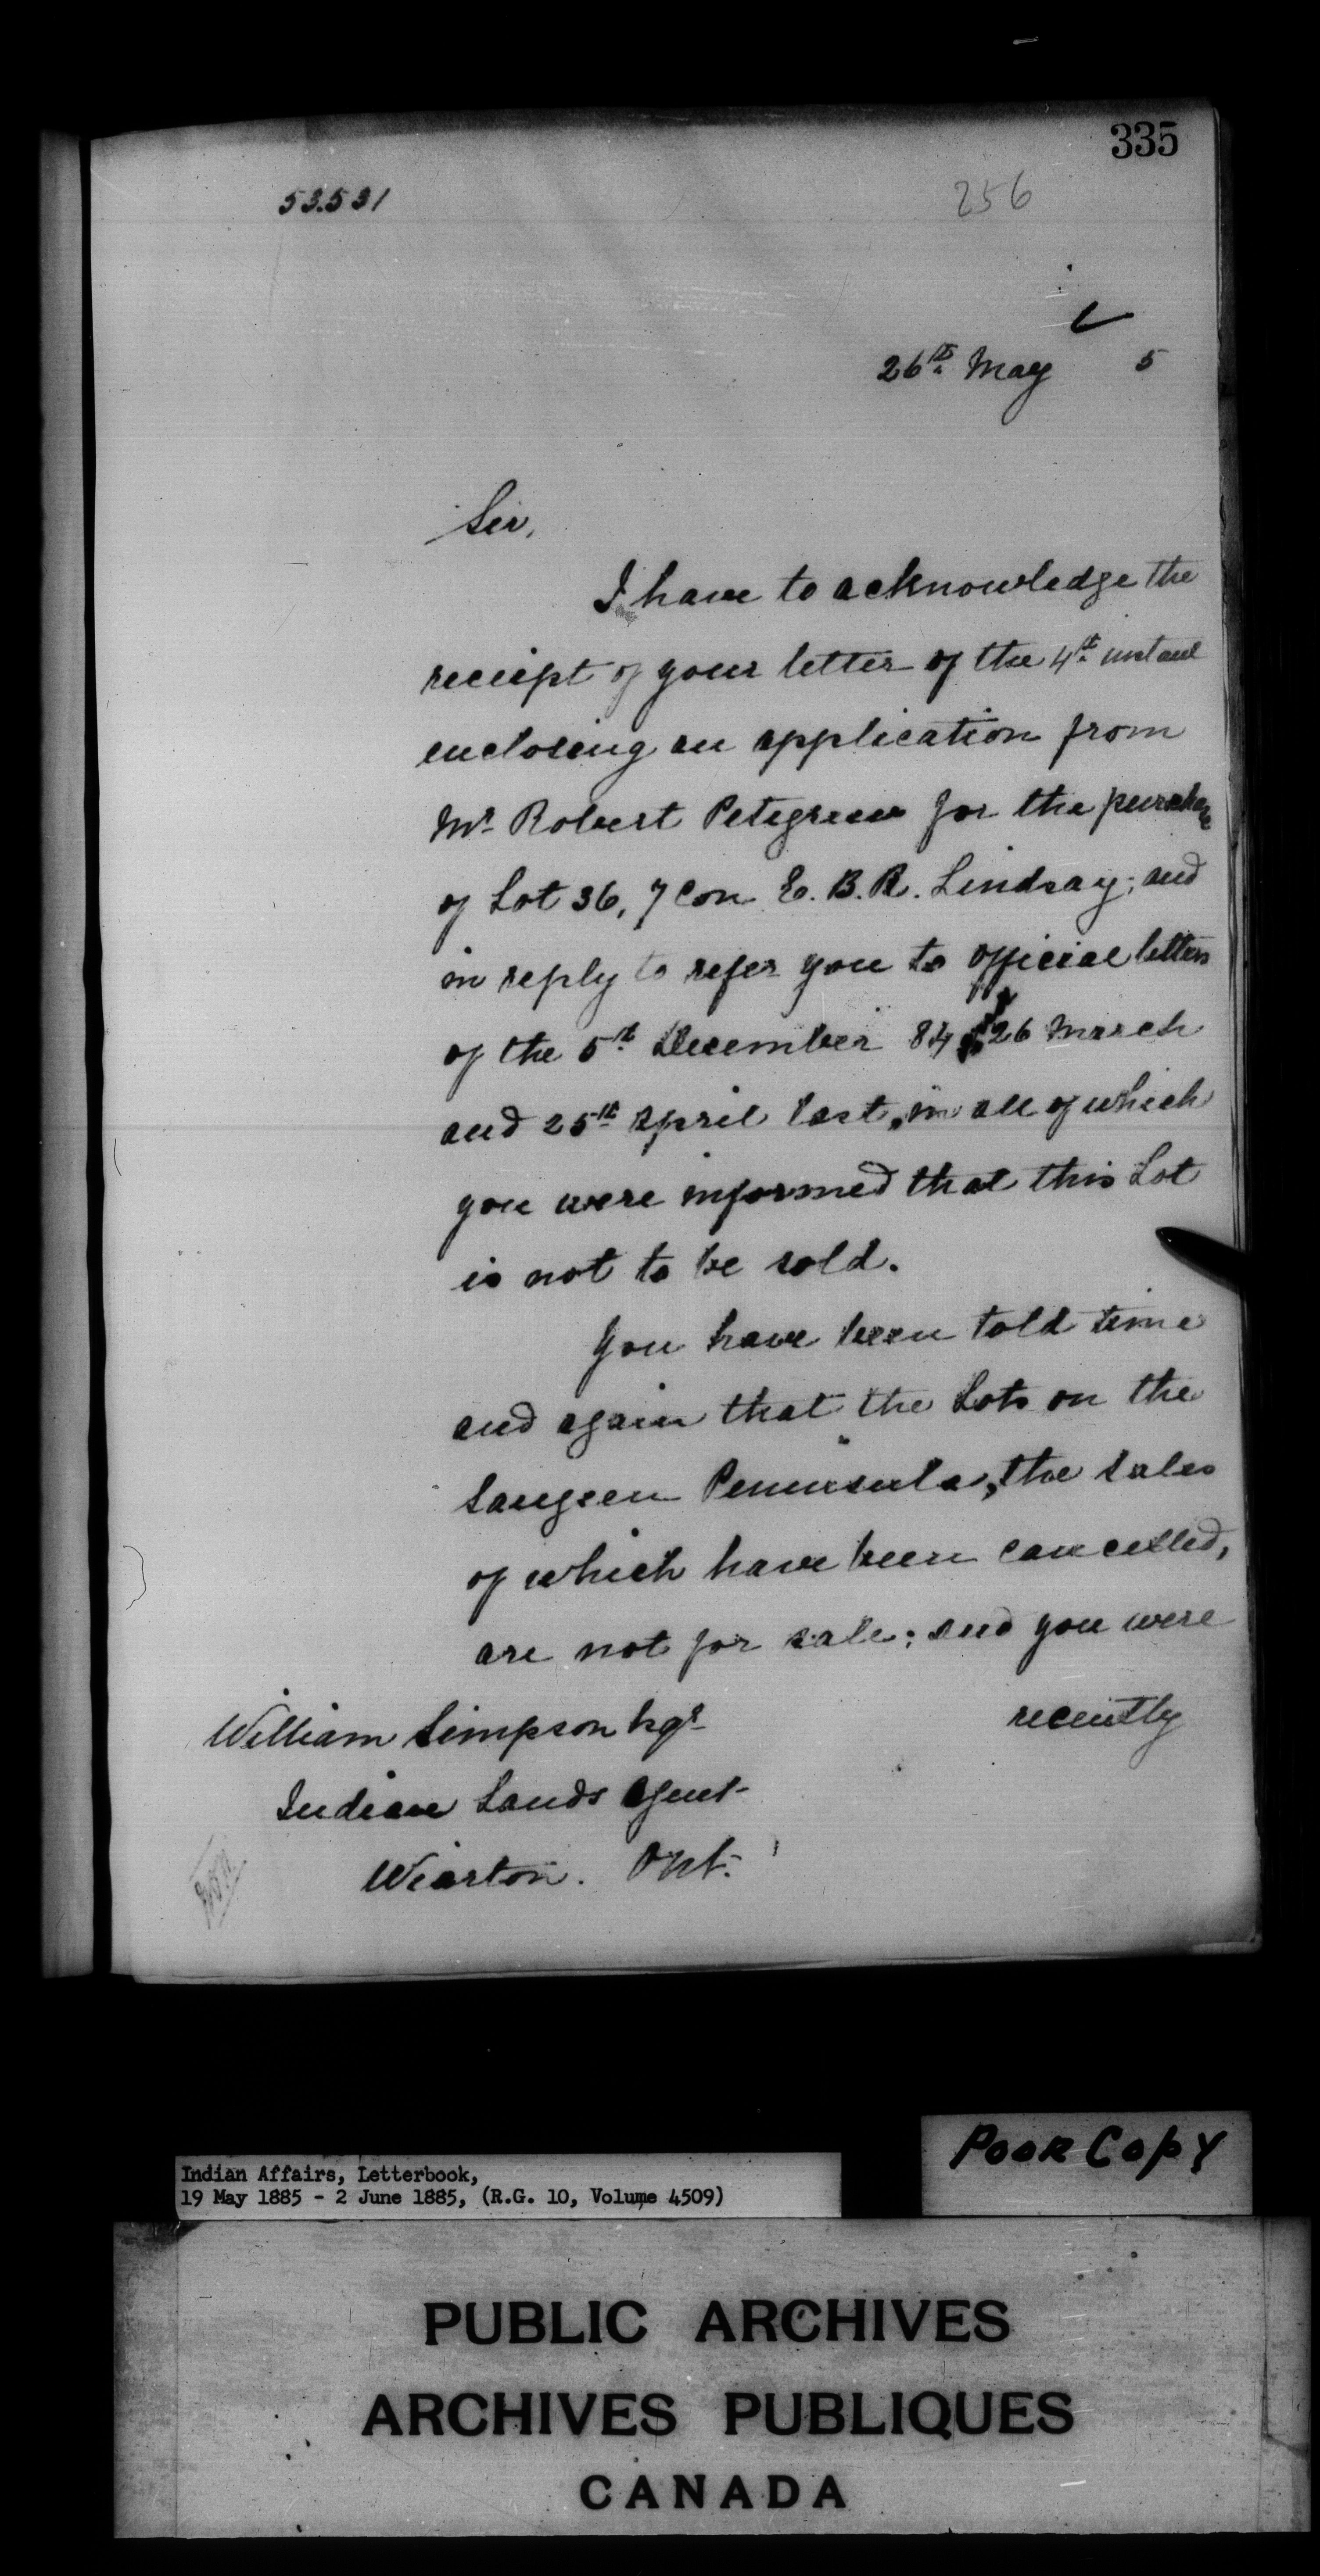 335
53.531
256
26th May 5
Sir,
I have to acknowledge the
receipt of your letter of the 4th instant
enclosing an application from
Mr Robert Petigrew for the purchase
of Lot 36, 7 Con E. B. R. Lindsay; and
in reply to refer you to official letters
of the 5th December 84, 26 March
and 25th April last, in all of which
you were informed that this Lot
is not to be sold.
You have been told time
and again that the Lots on the
Saugeen Peninsula, the sales
of which have been cancelled,
are not for sale; and you were
recently
William Simpson Esqr
Indian Lands Agent
Wiarton. Ont.
Poor Copy
Indian Affairs, Letterbook,
19 May 1885 - 2 June 1885, (R.G. 10, Volume 4509)
PUBLIC ARCHIVES
ARCHIVES PUBLIQUES
CANADA